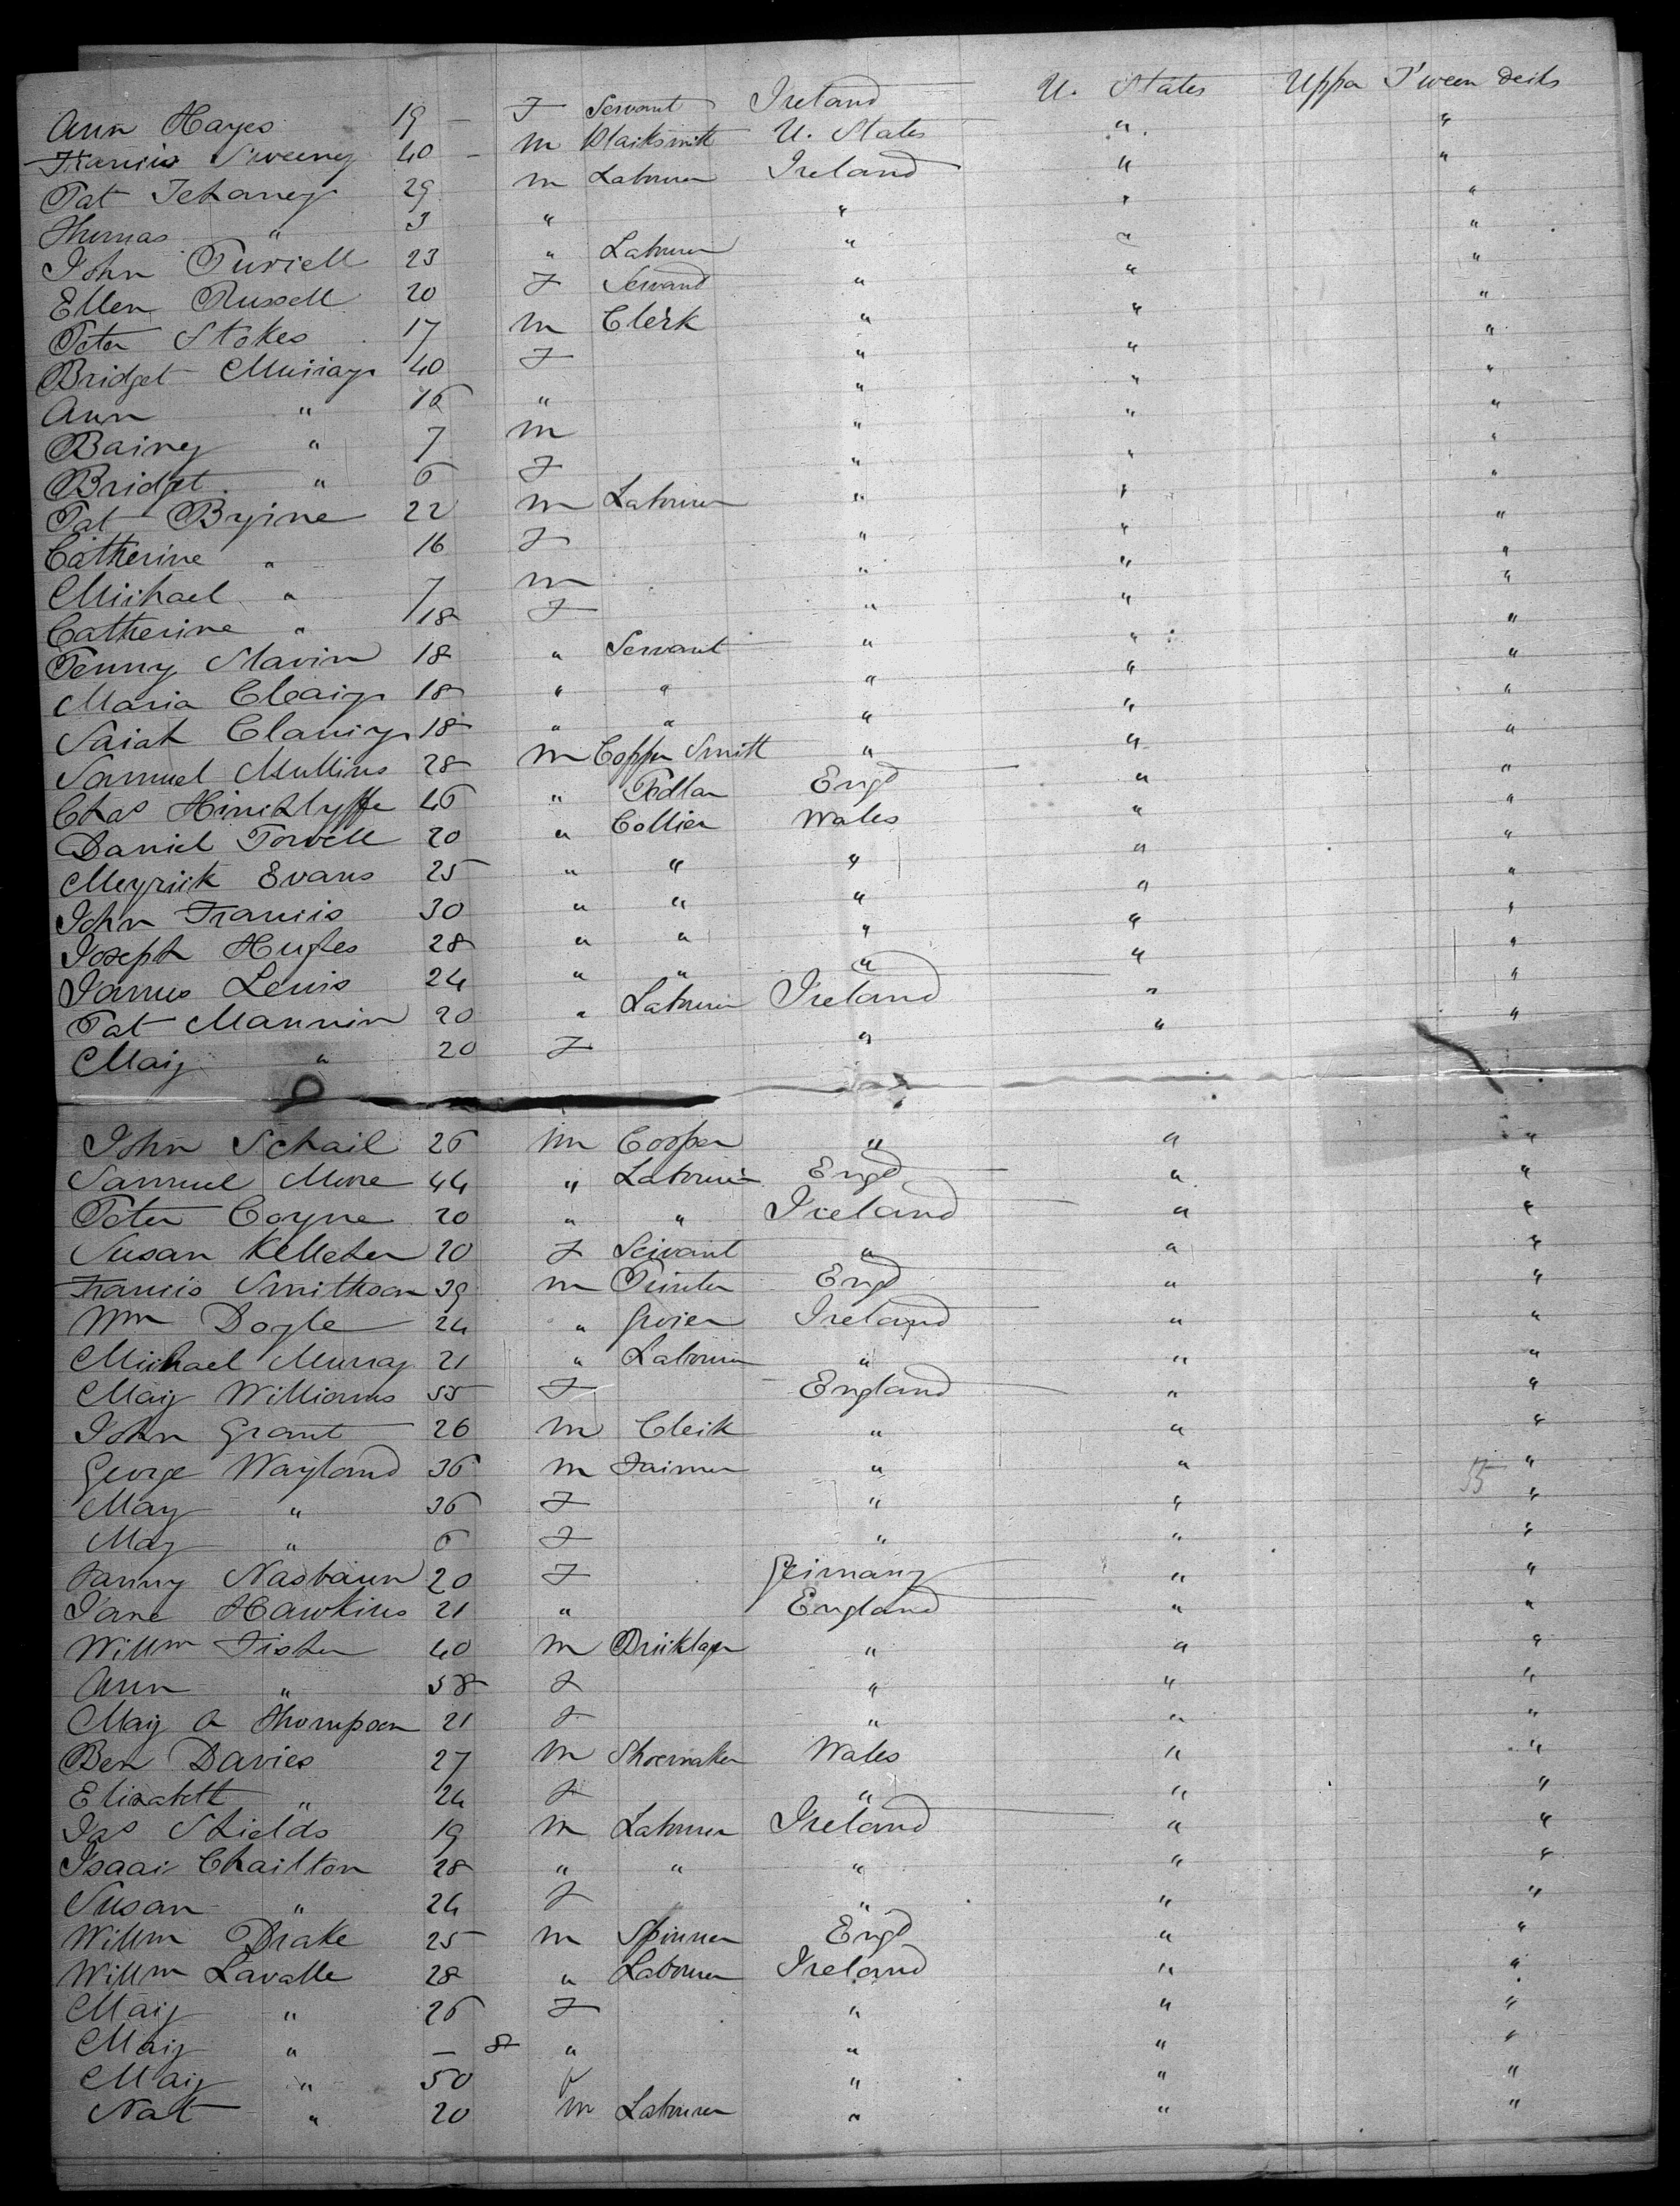 Ann Hayes 19 – F Servant Ireland U. States Upper T'ween decks
Francis Sweeny 40 – M Blacksmith U. States " "
Pat 29 M Labourer Ireland " "
Thomas " 3 " " " "
John 23 " Labourer " " "
Ellen Russell 20 F Servant " " "
Peter Stokes 17 M Clerk " " "
Bridget Murray 40 F " " "
Ann " 16 " " " "
Barney " 7 M " " "
Bridget " 6 F " " "
Pat Byrne 22 M Labourer " " "
Catherine " 16 F " " "
Michael " 7 M " " "
Catherine " 18 F " " "
Slavin 18 " Servant " " "
Maria Cleary 18 " " " " "
Sarah Clancy 18 " " " " "
Samuel Mullins 28 M Copper Smith " " "
Chas Hinchlyffe 46 " Pedlar Engd " "
Daniel Powell 20 " Collier Wales " "
Meyrick Evans 25 " " " " "
John Francis 30 " " " " "
Joseph Hughes 28 " " " " "
James Lewis 24 " " " " "
Pat Mannin 20 " Labourer Ireland " "
Mary " 20 F " " "
John Schail 26 M Cooper " " "
Samuel More 44 " Labourer Engd " "
Peter Coyne 20 " " Ireland " "
Susan Kelleher 20 F Servant " " "
Francis Smithson 39 M Printer Engd " "
Wm Doyle 24 " Grocer Ireland " "
Michael Murray 21 " Labourer " " "
Mary Williams 55 F England " "
John Grant 26 M Clerk " " "
George Wayland 36 M Farmer " " "
Mary " 36 F " " " 55
Mary " 6 F " " "
Fanny Nasbaun 20 F Germany " "
Jane Hawkins 21 " England " "
Willm Fisher 40 M Bricklayer " " "
Ann " 38 F " " "
Mary A Thompson 21 F " " "
Ben Davies 27 M Shoemaker Wales " "
Elizabeth " 24 F " " "
Jas Shields 19 M Labourer Ireland " "
Isaac Charlton 28 " " " " "
Susan " 24 F " " "
Willm Drake 25 M Spinner Engd " "
Willm Lavalle 28 " Labourer Ireland " "
Mary " 26 F " " "
Mary " – 8 " " " "
Mary " 50 " " "
Nat " 20 M Labourer " " "